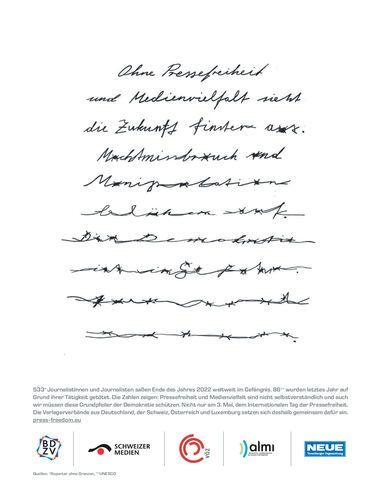 Ohne Pressefreiheit
und Medienvielfalt sieht
die Zukunft finster aus.
Machtmissbrauch und
Manipulation
blühen auf.
Die Demokratie
ist in Gefahr.
533* Journalistinnen und Journalisten saßen Ende des Jahres 2022 weltweit im Gefängnis. 86** wurden letztes Jahr auf
Grund ihrer Tätigkeit getötet. Die Zahlen zeigen: Pressefreiheit und Medienvielfalt sind nicht selbstverständlich und auch
wir müssen diese Grundpfeiler der Demokratie schützen. Nicht nur am 3. Mai, dem Internationalen Tag der Pressefreiheit.
Die Verlegerverbände aus Deutschland, der Schweiz, Österreich und Luxemburg setzen sich deshalb gemeinsam dafür ein.
press-freedom.eu
BD
ZV
SCHWEIZER
MEDIEN
VÖZ
almi
NEUE
Quellen: *Reporter ohne Grenzen, **UNESCO